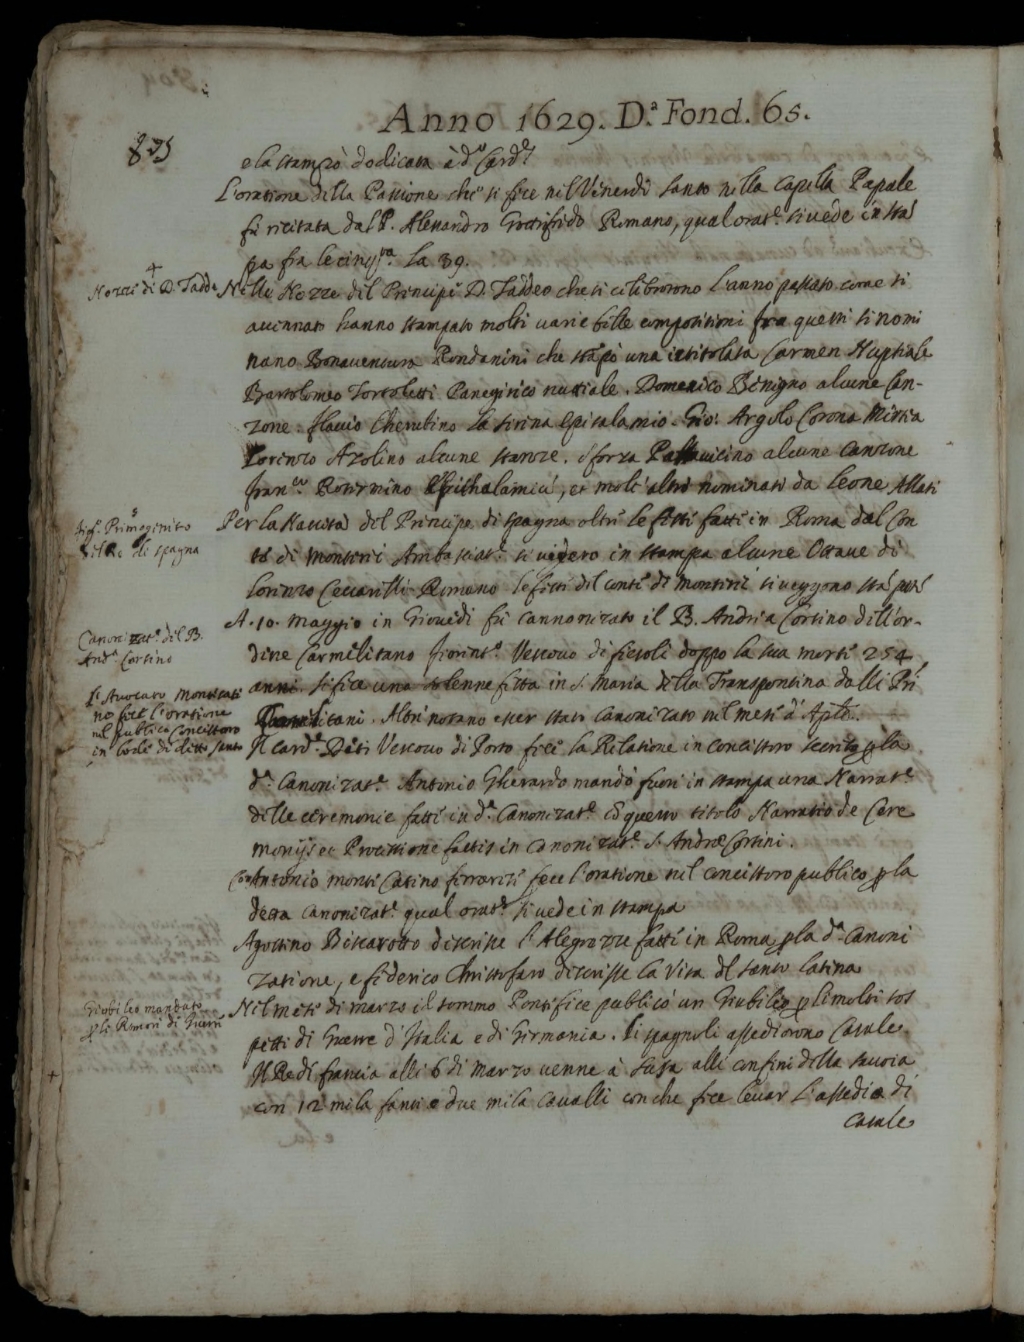 Anno 1629. D.ª Fond. 65.
825
e la stampò dedicata à d.º Card.l
L'oratione della Passione che si fece nel Venerdi santo nella Capella Papale
fu recitata dal P. Alessandro Gottifredo Romano, qual orat.e si vede in sta
pa fra le cinq.ta la 39.
Nozze di D. Tadde
Nelle Nozze del Principe D. Taddeo che si celebrorono l'anno passato come si
accennato hanno stampato molti varie belle compositioni fra questi si nomi
nano Bonaventura Rondanini che stãpò una intitolata Carmen Nuptiale
Bartolomeo Tortoletti Panegirico nuttiale. Domenico Benigno alcune Can-
zone. Flavio Cherubino la sirina Epitalamio. Gio: Argolo Corona Mirtea
Lorenzo Azolino alcune stanze. Sforza Pallavicino alcune Canzone
Fran.co Rotermino Epithalamiũ, et molt'altri nominati da Leone Allati
Primogenito
del Re di spagna
Per la Nascita del Principe di spagna oltre le feste fatte in Roma dal Con
te di Monterei Ambasciat.e si videro in stampa alcune Ottave di
Lorenzo Ceccarelli Romano le feste del conte di Monterei si veggono
Canonizat.e del B.
And.a Corsino
A. 10. Maggio in Giovedi fu cannonizato il B. Andrea Corsino dell'or-
dine Carmelitano fiorent.o Vescovo di fiesoli doppo la sua morte 254
anni. si fece una solenne festa in S. Maria della Transpontina dalli Pri
Carmelitani. Altri notano esser stato canonizato nel mese d'Aple.
L'Avocato Montecati
no fece l'oratione
nel publico Concistoro
in lode di detto santo
Il Card. Deti Vescovo di Porto fece la Relatione in concistoro secreto p la
d.a Canonizat.e Antonio Gherardo mandò fuori in stampa una Narrat.e
delle ceremonie fatte in d.a Canonizat.e cõ questo titolo Narratio de Cere
monijs ac Processione factis in Canonizat.e S. Andreæ Corsini.
Antonio Monte Catino ferrarese fece l'oratione nel concistoro publico p la
detta Canonizat.e qual orat.e si vede in stampa
Agostino Biscarotto descrisse l'Alegrezze fatte in Roma p la d.a Canoni
zatione, e federico Christofaro descrisse la Vita del santo latina
Giobileo mandato
p li Rumori di Guerre
Nel mese di marzo il sommo Pontefice publicò un Giubileo p li molti sos
petti di Guerre d'Italia e di Germania. Li spagnoli assediorono Casale.
Il Re di francia alli 6 di Marzo venne à Susa alli confini della savoia
con 12 mila fanti e due mila Cavalli con che fece levar L'assedio di
Casale